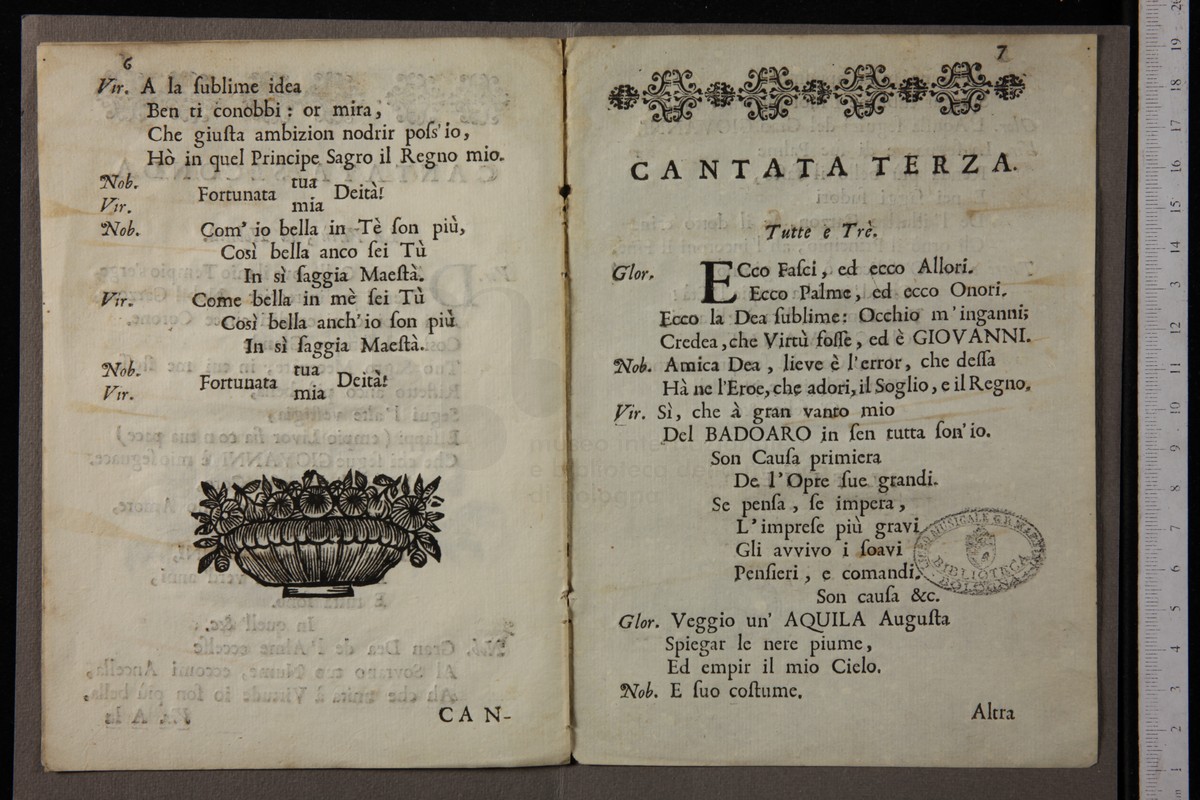 6
Vir. A la ſublime idea
Ben ti conobbi : or mira,
Che giuſta ambizion nodrir poſs'io,
Hò in quel Principe Sagro il Regno mio.
Nob. Vir. Fortunata tua mia Deità!
Nob. Com' io bella in Tè ſon più,
Così bella anco ſei Tù
In sì ſaggia Maeſtà.
Vir. Come bella in mè ſei Tù
Così bella anch'io ſon più
In sì ſaggia Maeſtà.
Nob. Vir. Fortunata tua mia Deità!
CAN-
7
CANTATA TERZA.
Tutte e Trè.
Glor. ECco Faſci, ed ecco Allori.
Ecco Palme, ed ecco Onori.
Ecco la Dea ſublime: Occhio m'inganni;
Credea, che Virtù foſſe, ed è GIOVANNI.
Nob. Amica Dea, lieve è l'error, che deſſa
Hà ne l'Eroe, che adori, il Soglio, e il Regno.
Vir. Sì, che à gran vanto mio
Del BADOARO in ſen tutta ſon'io.
Son Cauſa primiera
De l'Opre ſue grandi.
Se penſa, ſe impera,
L'impreſe più gravi
Gli avvivo i ſoavi
Penſieri, e comandi.
Son cauſa &c.
Glor. Veggio un' AQUILA Auguſta
Spiegar le nere piume,
Ed empir il mio Cielo.
Nob. E ſuo coſtume.
Altra
BIBLIOTECA
BOLOGNA